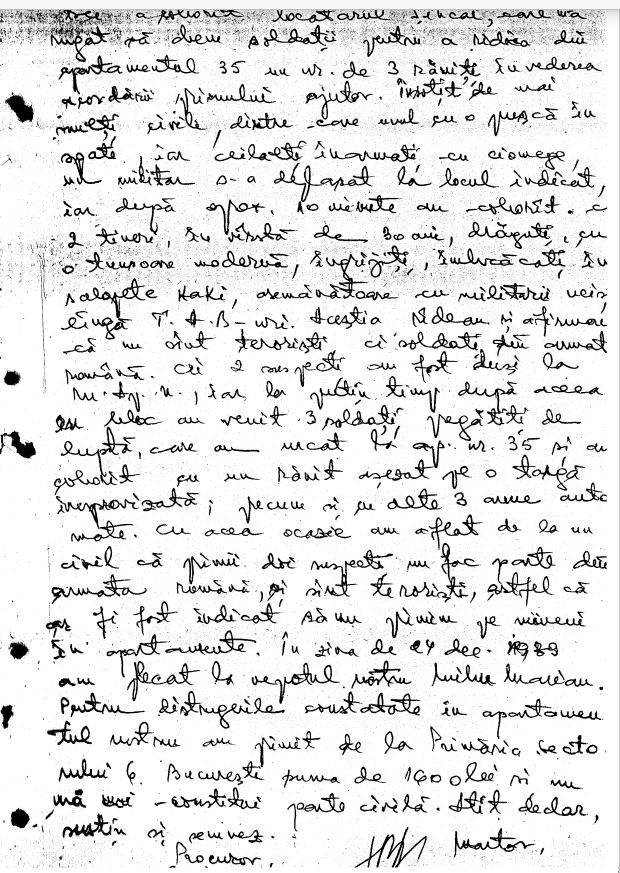 a coborît locatarul Fincal, care m-a
rugat să chem soldații pentru a ridica din
apartamentul 35 un nr. de 3 răniți în vederea
acordării primului ajutor. Însoțit de mai
mulți civili, dintre care unul cu o pușcă în
spate, iar ceilalți înarmați cu ciomege,
un militar s-a deplasat la locul indicat,
iar după aprox. 10 minute au coborît. c
2 tineri, în vîrstă de 30 ani, drăguți, cu
o tunsoare modernă, îngrijiți, îmbrăcați în
salopete Kaki, asemănătoare cu militarii
lîngă T.A.B-uri. Aceștia și afirmau
că nu sînt teroriști ci soldați din armat
română. Cei 2 suspecți au fost duși la
M.Ap.N., iar la puțin timp după aceea
în bloc au venit 3 soldați pegătiți de
luptă, care au urcat la ap. nr. 35 și au
coborît cu un rănit așezat pe o targă
improvizată; precum și cu alte 3 arme auto
mate. Cu acea ocazie am aflat de la un
civil că primii doi suspecți nu fac parte din
armata română, și sînt teroriști, astfel că
ar fi fost indicat să nu primim pe nimeni
în apartamente. În ziua de 24 dec. 1989
am plecat la nepotul nostru
Pentru distrugerile constatate în apartamen
tul nostru am primit de la Primăria Secto
rului 6 București suma de 1400 lei și nu
mă constitui parte civilă. Atît declar,
susțin și semnez.
Procuror, Martor,